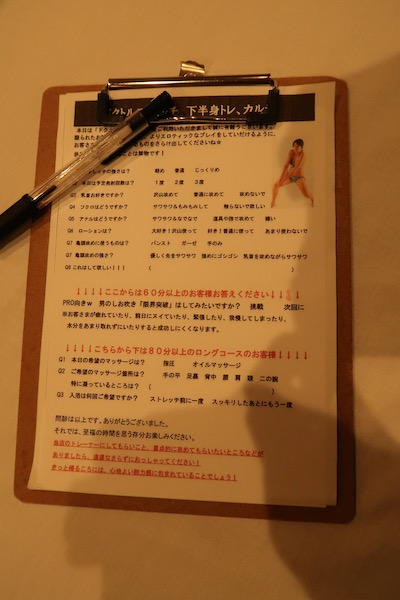 下半身トレ、カル
本日は「ドク
ご利用いただきまして誠に有難うございます。
限られたお
よりエロティックなプレイをしていただけるように、
お客さ
ものをさらけ出してくださいね☆
ことは厳物です！
の強さは？ 軽め 普通 じっくりめ
本日は予定発射回数は？ １度 ２度 ３度
Q3 乳首お好きですか？ 沢山攻めて 普通に攻めて 攻めないで
Q4 フクロはどうですか？ サワサワ＆もみもみして 触らないで欲しい
Q5 アナルはどうですか？ サワサワ＆なでなで 道具や指で攻めて 嫌い
Q6 ローションは？ 大好き！沢山使って 好き！普通に使って あまり使わないで
Q7 亀頭攻めに使うものは？ パンスト ガーゼ 手のみ
Q7 亀頭攻めの強さ？ 優しく先をサワサワ 強めにゴシゴシ 乳首を攻めながらサワサワ
Q8 これはして欲しい！！！ （ ）
↓↓↓↓ここからは６０分以上のお客様お答えください↓↓↓↓
PRO向きｗ 男のしお吹き「限界突破」はしてみたいですか？ 挑戦 次回に
※お客さまが疲れていたり、前日にヌイていたり、緊張したり、我慢してしまったり、
水分をあまり取れずにいたりすると成功しにくくなります。
↓↓↓↓こちらから下は８０分以上のロングコースのお客様↓↓↓↓
Q1 本日の希望のマッサージは？ 指圧 オイルマッサージ
Q2 ご希望のマッサージ箇所は？ 手の平 足裏 背中 腰 肩 頭 二の腕
特に凝っているところは？ （ ）
Q3 入浴は何回ご希望ですか？ ストレッチ前に一度 スッキリしたあとにもう一度
問診は以上です。ありがとうございました。
それでは、至福の時間を思う存分お楽しみください。
当店のトレーナーにしてもらいこと、重点的に攻めてもらいたいところなどが
ありましたら、遠慮なさらずにおっしゃってください！
きっと帰るころには、心地よい脱力感に包まれていることでしょう！